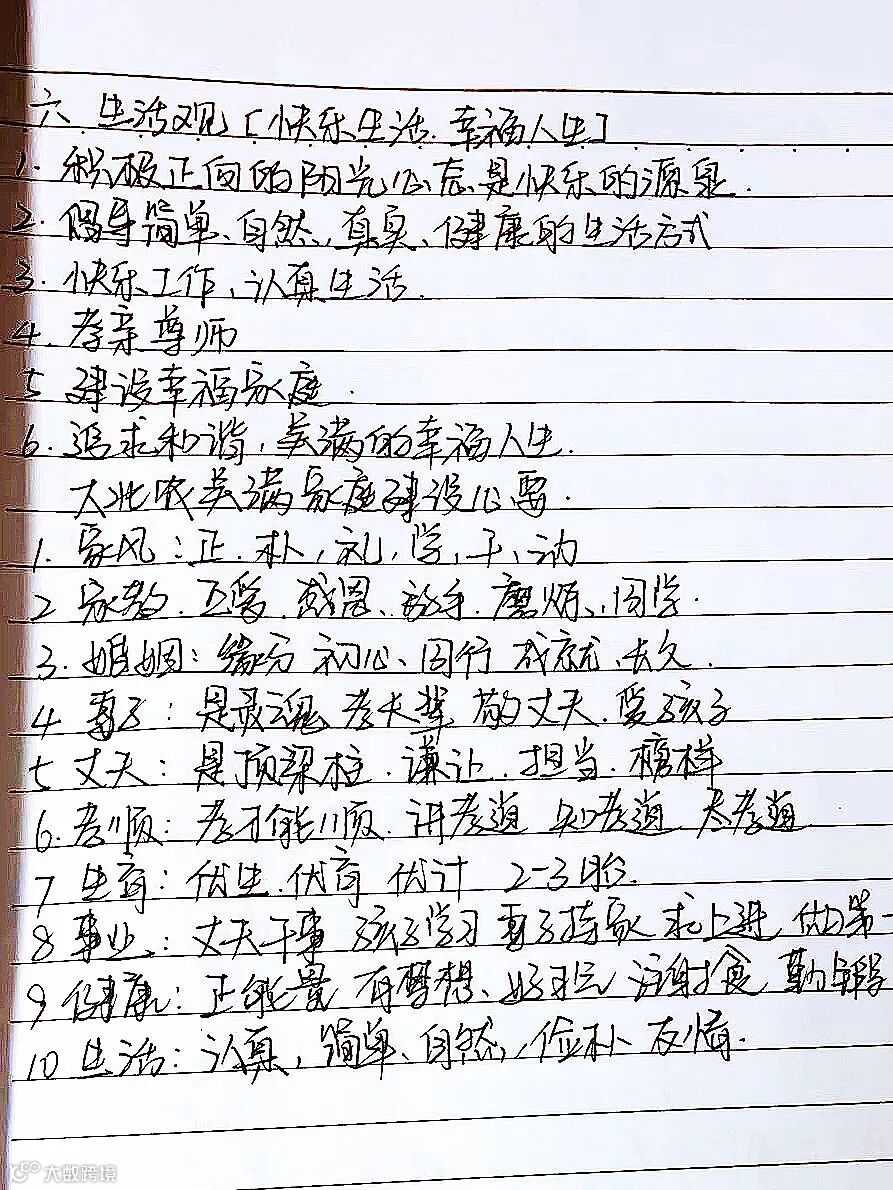 六、生活观［快乐生活、幸福人生］
1. 积极正向的阳光心态是快乐的源泉.
2. 倡导简单、自然、真实、健康的生活方式
3. 快乐工作、认真生活.
4. 孝亲尊师
5 建设幸福家庭.
6. 追求和谐，美满的幸福人生.
大北农美满家庭建设心要.
1. 家风：正.朴，礼，学，干，讷
2 家教.互爱.感恩、放手.磨炼、同学.
3. 婚姻：缘分 初心、同行 成就、长久.
4 妻子：是灵魂 孝长辈 敬丈夫.爱孩子
5 丈夫：是顶梁柱.谦让.担当.榜样
6. 孝顺：孝才能顺.讲孝道 知孝道
7 生育：优生.优育 优计 2-3胎.
8 事业：丈夫干事 孩子学习 妻子持家 求上进 做第一
9 健康：正能量 有梦想、好习惯 食 勤锻
10 生活：认真，简单、自然，俭朴
大数跨境